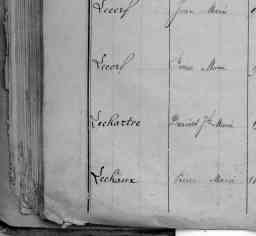 Lecerf Jean Marie
Lecerf Marie
Lechartre Marie
Lechaux Pierre Marie